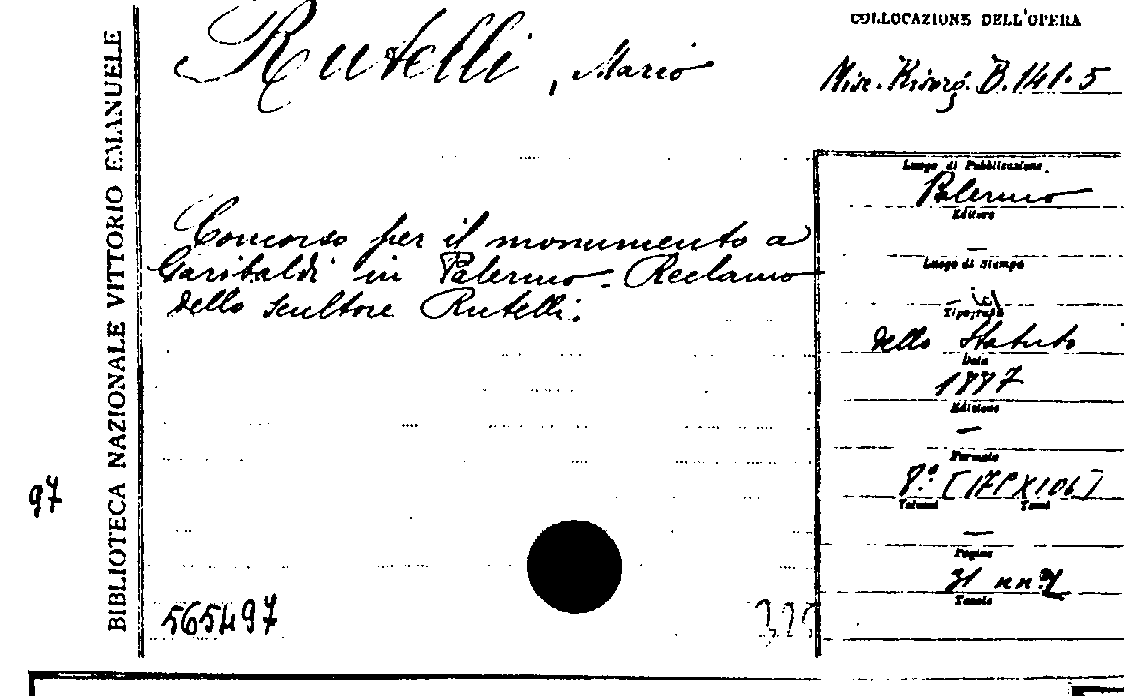 COLLOCAZIONE DELL'OPERA
Rutelli, Mario
Misc. Risorg. B.141.5
BIBLIOTECA NAZIONALE VITTORIO EMANUELE
Luogo di Pubblicazione
Palermo
Editore
—
Luogo di Stampa
— id
Tipografia
dello Statuto
Data
1887
Edizione
—
Formato
8.º
Volumi Tomi
—
Pagine
31
Tavole
Concorso per il monumento a
Garibaldi in Palermo. Reclamo
dello scultore Rutelli.
97
565497